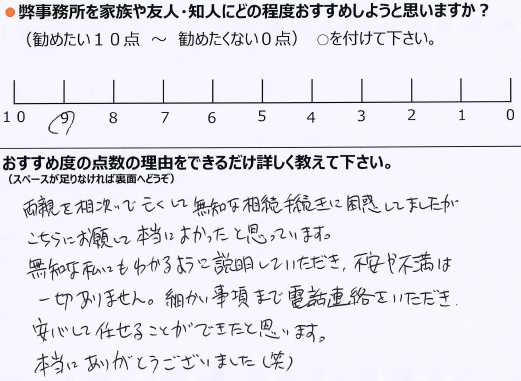 ●弊事務所を家族や友人・知人にどの程度おすすめしようと思いますか？
（勧めたい１０点　～　勧めたくない０点）　○を付けて下さい。
10 9 8 7 6 5 4 3 2 1 0
おすすめ度の点数の理由をできるだけ詳しく教えて下さい。
（スペースが足りなければ裏面へどうぞ）
両親を相次いで亡くして無知な相続手続きに困惑してましたが
こちらにお願して本当によかったと思っています。
無知な私にもわかるように説明していただき、不安や不満は
一切ありません。細かい事項まで電話連絡をいただき、
安心して任せることができたと思います。
本当にありがとうございました（笑）